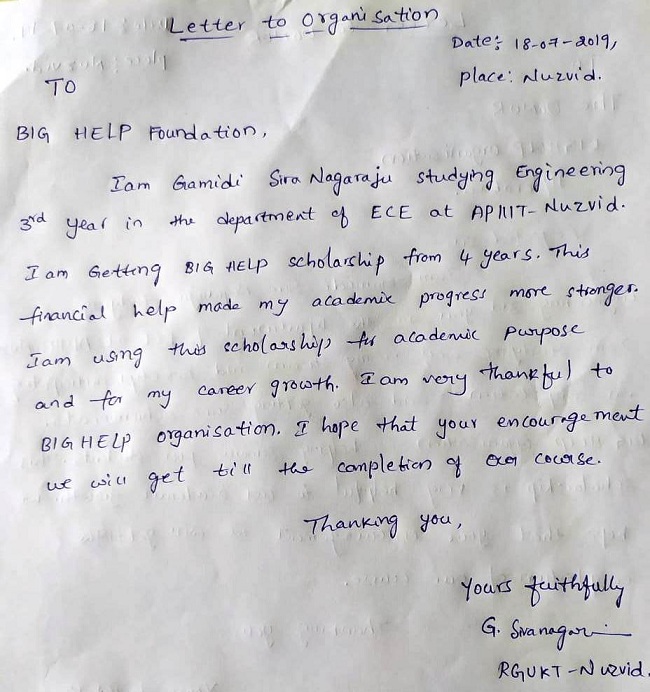 Letter to Organisation
Date: 18-07-2019,
Place: Nuzvid.
TO
BIG HELP Foundation,
I am Gamidi Siva Nagaraju studying Engineering
3rd year in the department of ECE at AP IIIT- Nuzvid.
I am Getting BIG HELP scholarship from 4 years. This
financial help made my academic progress more stronger.
I am using this scholarship for academic purpose
and for my career growth. I am very thankful to
BIG HELP organisation. I hope that your encouragement
we will get till the completion of our course.
Thanking you,
Yours faithfully
G. Sivanagar
RGUKT-Nuzvid.